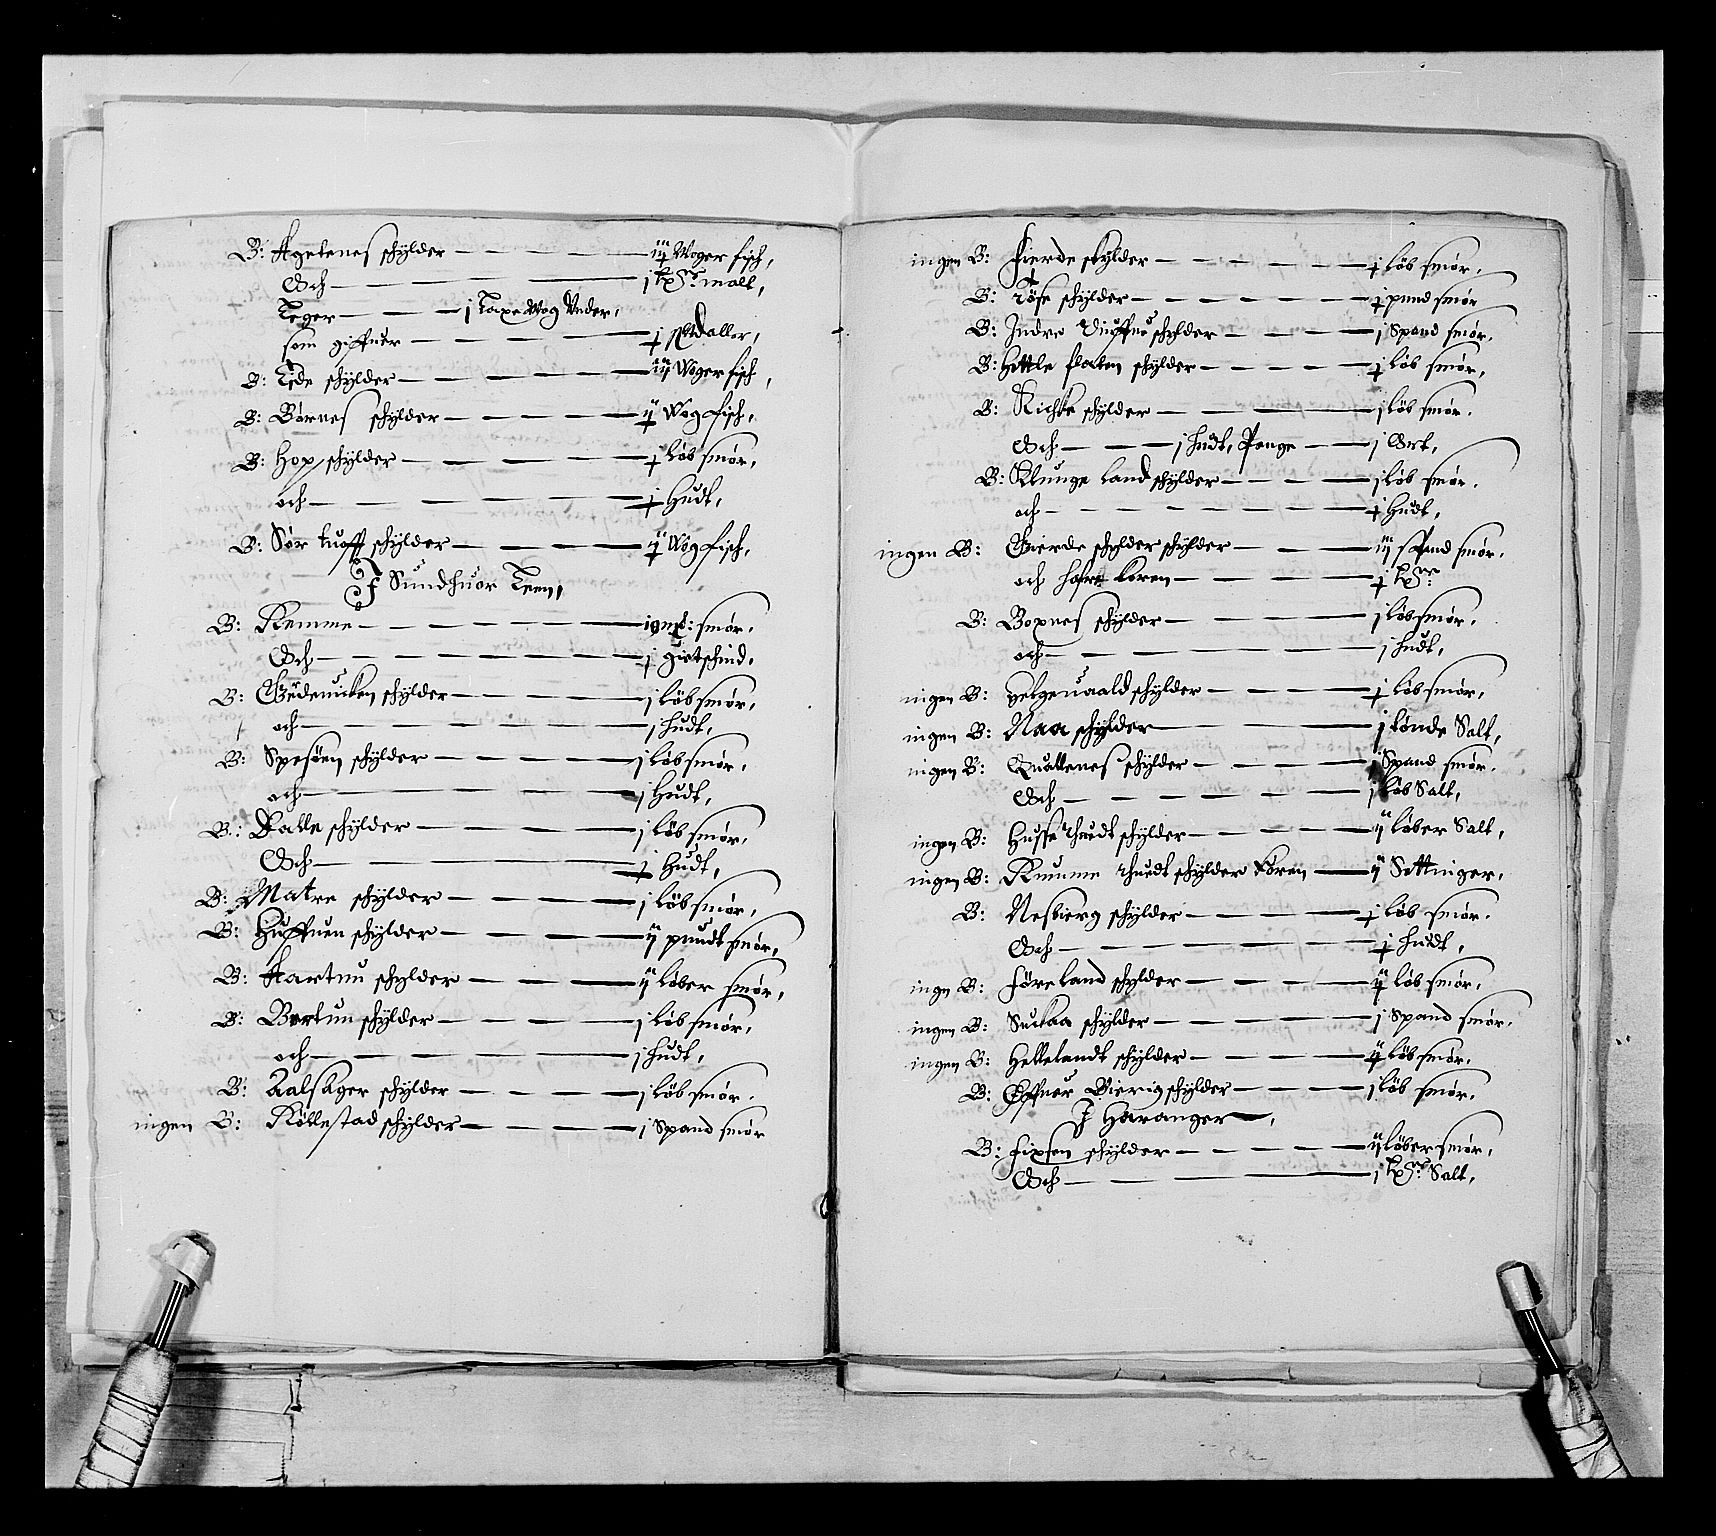 B: Agetenes schylder — — — — iij Woger fisch,
Och — — — j tp<sup>r</sup>: malt,
Leger — — — j Taxe Wog Under,
som giffuer — — — — Rdaller,
B: Eide schylder — — — — iij Woger fisch,
B: Børnes schylder — — — — ij Wog fisch,
B: Hop schylder — — — — løb smør,
och — — — — Hudt,
B: Sør tuofft schylder — — — — ij Wog fisch,
If Sundhuor Leen,
B: Remme — — — — smør,
Och — — — — j gietschind,
B: Gedeuicken schylder — — — — j løb smør,
och — — — — j hudt,
B: Spesøen schylder — — — — j løb smør,
och — — — — j Hudt,
B: Dalle schylder — — — — j løb smør,
Och — — — — Hudt,
B: Matre schylder — — — — j løb smør,
B: Huffuen schylder — — — — ij pundt smør,
B: Aartun schylder — — — — ij løber smør,
B: Bertun schylder — — — — j løb smør,
och — — — — j hudt,
B: Aalsager schylder — — — — j løb smør,
ingen B: Røllestad schylder — — — — j Spand smør
ingen B: Fierde schylder — — — — løb smør,
B: Røse schylder — — — — pund smør
B: Indre schylder — — — — j Spand smør,
B: Hettle flaten schylder — — — — løb smør,
B: Kichke schylder — — — — j løb smør,
Och — — j hudt, Penge — — j Ort,
B: Klunge land schylder — — — — j løb smør,
och — — — — Hudt,
ingen B: Gierde schylder schylder — — — iij spand smør,
och hafre koren — — — — tp<sup>r</sup>:
B: Boxnes schylder — — — — j løb smør,
och — — — — j hudt,
ingen B: schylder — — — løb smør,
ingen B: Naa schylder — — — j tønde Salt,
ingen B: Quallenes schylder — — — j Spand smør,
Och — — — — j løb Salt,
ingen B: Husse thuedt schylder — — — ij løber Salt,
ingen B: Rumme thuedt schylder Koren — ij Settinger,
B: Nesbierg schylder — — — — løb smør,
Och — — — — hudt,
ingen B: Føre land schylder — — — ij løb smør,
ingen B: Suckaa schylder — — — j Spand smør,
ingen B: Hellelandt schylder — — — ij løb smør,
B: Øffuer Bierig schylder — — — j løb smør,
J Haranger,
B: Fixsen schylder — — — — ij løber smør,
Och — — — — j tp<sup>r</sup>: Salt,